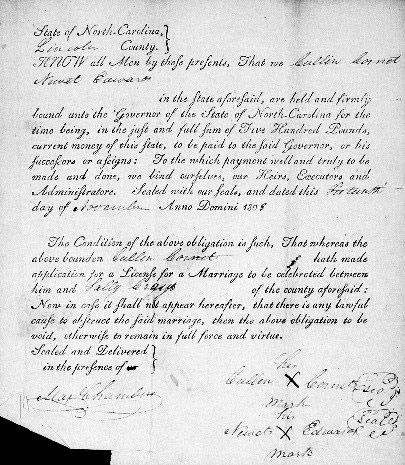 State of North-Carolina,
Lincoln County.
KNOW all Men by these presents, That we Cullen Cornet
Newet Edwards
in the State aforesaid, are held and firmly
bound unto the Governor of the State of North-Carolina for the
time being, in the just and full sum of Five Hundred Pounds,
current money of this State, to be paid to the said Governor, or his
successors or assigns: To the which payment well and truly to be
made and done, we bind ourselves, our Heirs, Executors and
Administrators. Sealed with our seals, and dated this
day of November Anno Domini 180
The Condition of the above obligation is such, That whereas the
above bounden Cullen Cornet hath made
application for a License for a Marriage to be celebrated between
him and Sally of the county aforesaid:
Now in case it shall not appear hereafter, that there is any lawful
cause to obstruct the said marriage, then the above obligation to be
void, otherwise to remain in full force and virtue.
Sealed and Delivered
in the presence of
his
Cullen X Cornet Seal
mark
his
Newet X Edwards Seal
mark